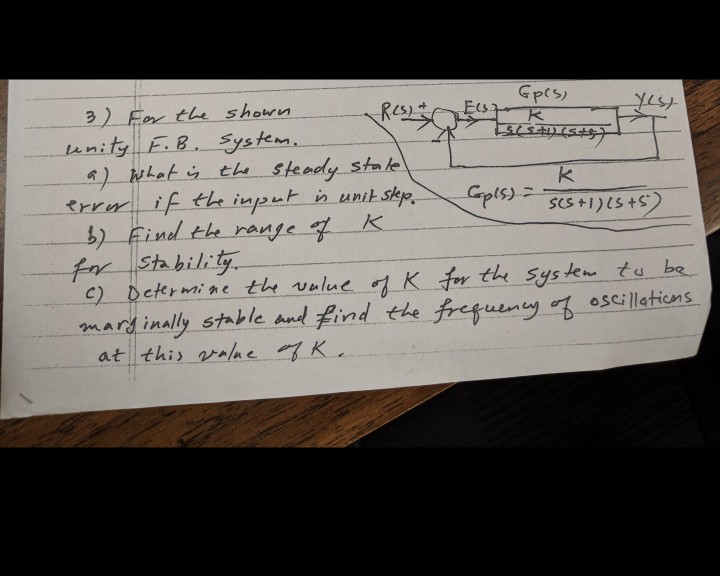 3) For the shown
unity F.B. system.
a) What is the steady state
error if the input is unit step.
b) Find the range of K
for stability.
c) Determine the value of K for the system to be
marginally stable and find the frequency of oscillations
at this value of K.
Gp(s)
R(s) + E(s) K Y(s)
s(s+1)(s+5)
-
Gp(s) = K
s(s+1)(s+5)